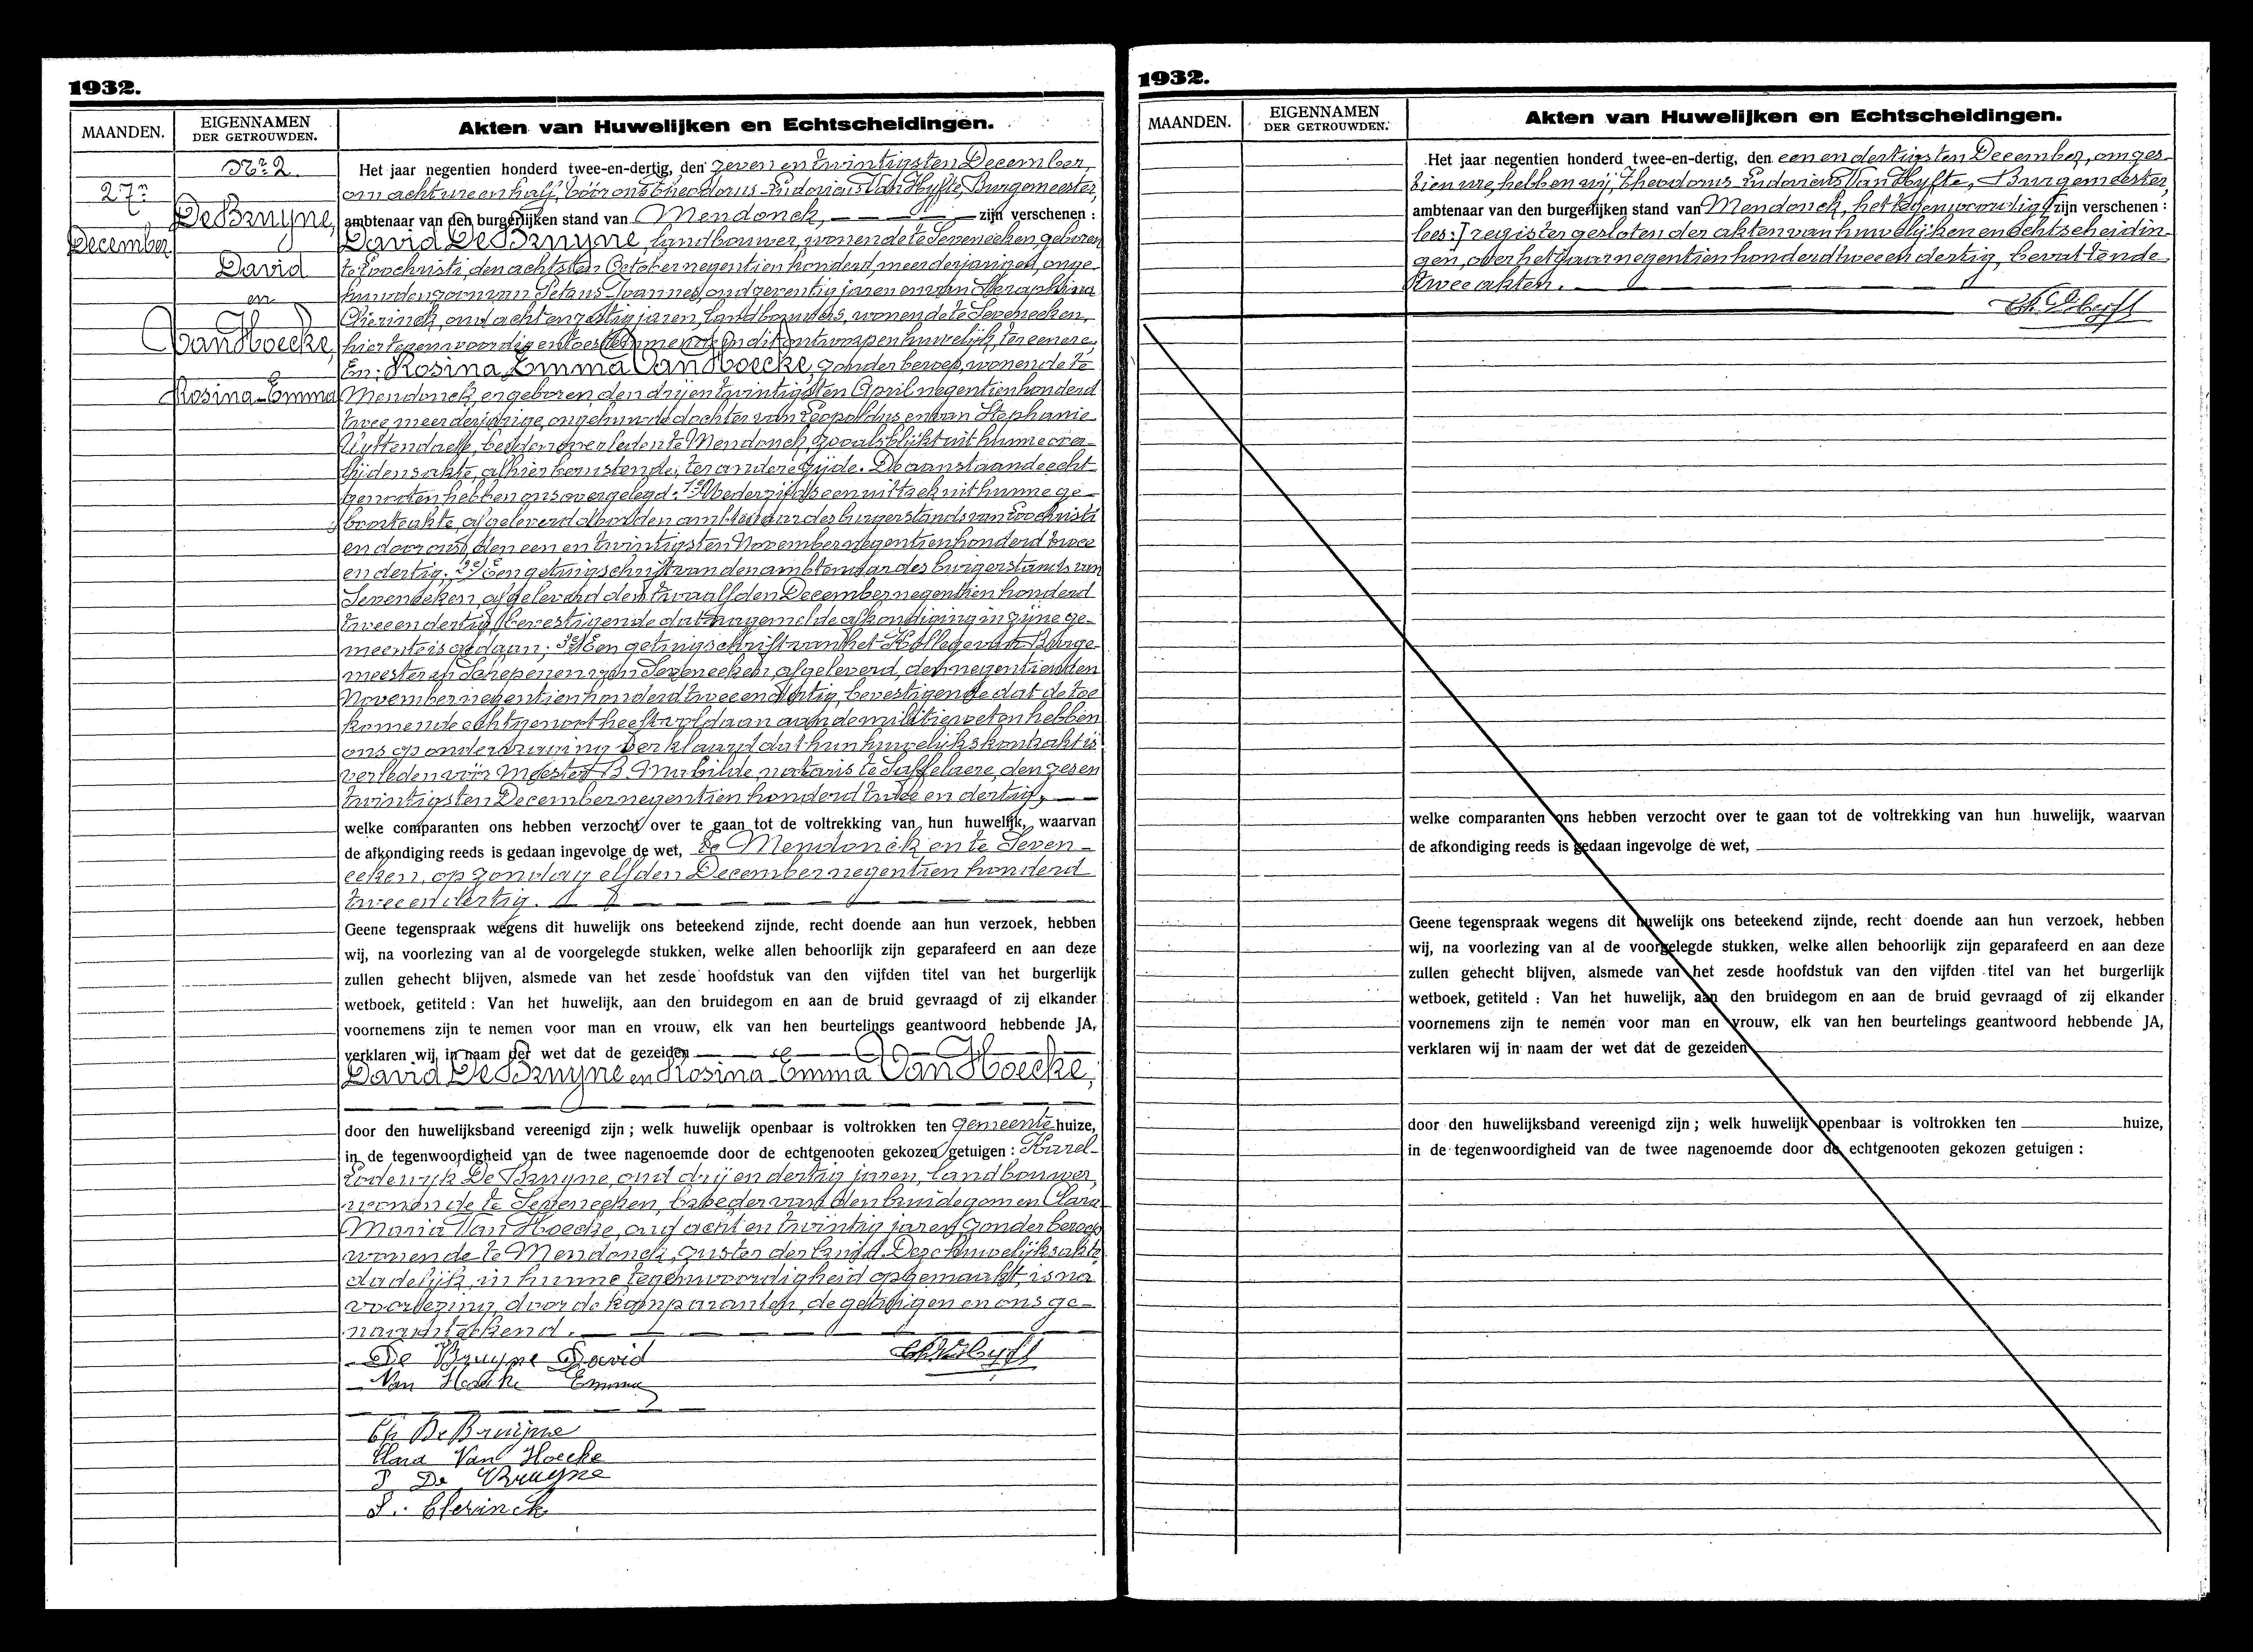 1932.
MAANDEN.
EIGENNAMEN
DER GETROUWDEN.
Akten van Huwelijken en Echtscheidingen.
Nr. 2.
27n
December
De Bruyne,
David
en
Van Hoecke,
Rosina-Emma
Het jaar negentien honderd twee-en-dertig, den zeven en twintigsten December,
om acht ure en half, vóór ons Theodorus-Ludovicus Van Hyfte, Burgemeester,
ambtenaar van den burgerlijken stand van Mendonck, zijn verschenen :
David De Bruyne, landbouwer, wonende te Seveneeken, geboren
te Loochristi, den achtsten October negentien honderd, meerderjarigen, onge-
huwden zoon van Petrus-Joannes, oud zeventig jaren en van Seraphina
Clerinck, oud acht en zestig jaren, landbouwers, wonende te Seveneeken,
hier tegenwoordig en toestemmende in dit ontworpen huwelijk, ter eenere;
En: Rosina Emma Van Hoecke, zonder beroep, wonende te
Mendonck, er geboren, den drij en twintigsten April negentien honderd
twee, meerderjarige, ongehuwde dochter van Leopoldus, en van Stephanie
Uyttendaele, beiden overleden te Mendonck, zooals blijkt uit hunne over-
lijdensakte, alhier berustende; ter andere zijde. De aanstaande echt-
genooten hebben ons overgelegd: 1e/ Wederzijds een uittrek uit hunne ge-
boorteakte, afgeleverd door den ambtenaar des burgerstands van Loochristi
en door ons, den een en twintigsten November negentien honderd twee
en dertig; 2e/ Een getuigschrift van den ambtenaar des burgerstands van
Seveneeken, afgeleverd den twaalfden December negentien honderd
twee en dertig, bevestigende dat nagemelde afkondiging in zijne ge-
meente is gedaan; 3e/ Een getuigschrift van het Kollege van Burge-
meester en Schepenen van Seveneeken, afgeleverd, den negentienden
November negentien honderd twee en dertig, bevestigende dat de toe
komende echtgenoot heeft voldaan aan de militiewet en hebben
ons op ondervraging verklaard dat hun huwelijkskontrakt is
verleden vóór Meester B. Mabilde, notaris te Saffelaere, den zesen
twintigsten December negentien honderd twee en dertig,
welke comparanten ons hebben verzocht over te gaan tot de voltrekking van hun huwelijk, waarvan
de afkondiging reeds is gedaan ingevolge de wet, te Mendonck en te Seven-
eeken, op zondag elfden December negentien honderd
twee en dertig.
Geene tegenspraak wegens dit huwelijk ons beteekend zijnde, recht doende aan hun verzoek, hebben
wij, na voorlezing van al de voorgelegde stukken, welke allen behoorlijk zijn geparafeerd en aan deze
zullen gehecht blijven, alsmede van het zesde hoofdstuk van den vijfden titel van het burgerlijk
wetboek, getiteld : Van het huwelijk, aan den bruidegom en aan de bruid gevraagd of zij elkander
voornemens zijn te nemen voor man en vrouw, elk van hen beurtelings geantwoord hebbende JA,
verklaren wij in naam der wet dat de gezeiden
David De Bruyne en Rosina-Emma Van Hoecke,
door den huwelijksband vereenigd zijn ; welk huwelijk openbaar is voltrokken ten gemeente huize,
in de tegenwoordigheid van de twee nagenoemde door de echtgenooten gekozen getuigen : Karel-
Lodewijk De Bruyne, oud drij en dertig jaren, landbouwer,
wonende te Seveneeken, broeder van den bruidegom en Clara-
Maria Van Hoecke, oud acht en twintig jaren, zonder beroep
wonende te Mendonck, zuster der bruid. Deze huwelijksakte
dadelijk, in hunne tegenwoordigheid opgemaakt, is na
voorlezing, door de komparanten, de getuigen en ons ge-
naamteekend.
De Bruyne David
Van Hoecke Emma
Ch De Bruijne
Clara Van Hoecke
P De Bruyne
S. Clerinck
1932.
MAANDEN.
EIGENNAMEN
DER GETROUWDEN.
Akten van Huwelijken en Echtscheidingen.
Het jaar negentien honderd twee-en-dertig, den een en dertigsten December, om zes-
tien ure, hebben wij, Theodorus Ludovicus Van Hyfte, Burgemeester,
ambtenaar van den burgerlijken stand van Mendonck, het tegenwoordig zijn verschenen :
lees:] register gesloten der akten van huwelijken en echtscheidin-
gen, over het jaar negentien honderd twee en dertig, bevattende
twee akten.
welke comparanten ons hebben verzocht over te gaan tot de voltrekking van hun huwelijk, waarvan
de afkondiging reeds is gedaan ingevolge de wet,
Geene tegenspraak wegens dit huwelijk ons beteekend zijnde, recht doende aan hun verzoek, hebben
wij, na voorlezing van al de voorgelegde stukken, welke allen behoorlijk zijn geparafeerd en aan deze
zullen gehecht blijven, alsmede van het zesde hoofdstuk van den vijfden titel van het burgerlijk
wetboek, getiteld : Van het huwelijk, aan den bruidegom en aan de bruid gevraagd of zij elkander
voornemens zijn te nemen voor man en vrouw, elk van hen beurtelings geantwoord hebbende JA,
verklaren wij in naam der wet dat de gezeiden
door den huwelijksband vereenigd zijn ; welk huwelijk openbaar is voltrokken ten huize,
in de tegenwoordigheid van de twee nagenoemde door de echtgenooten gekozen getuigen :